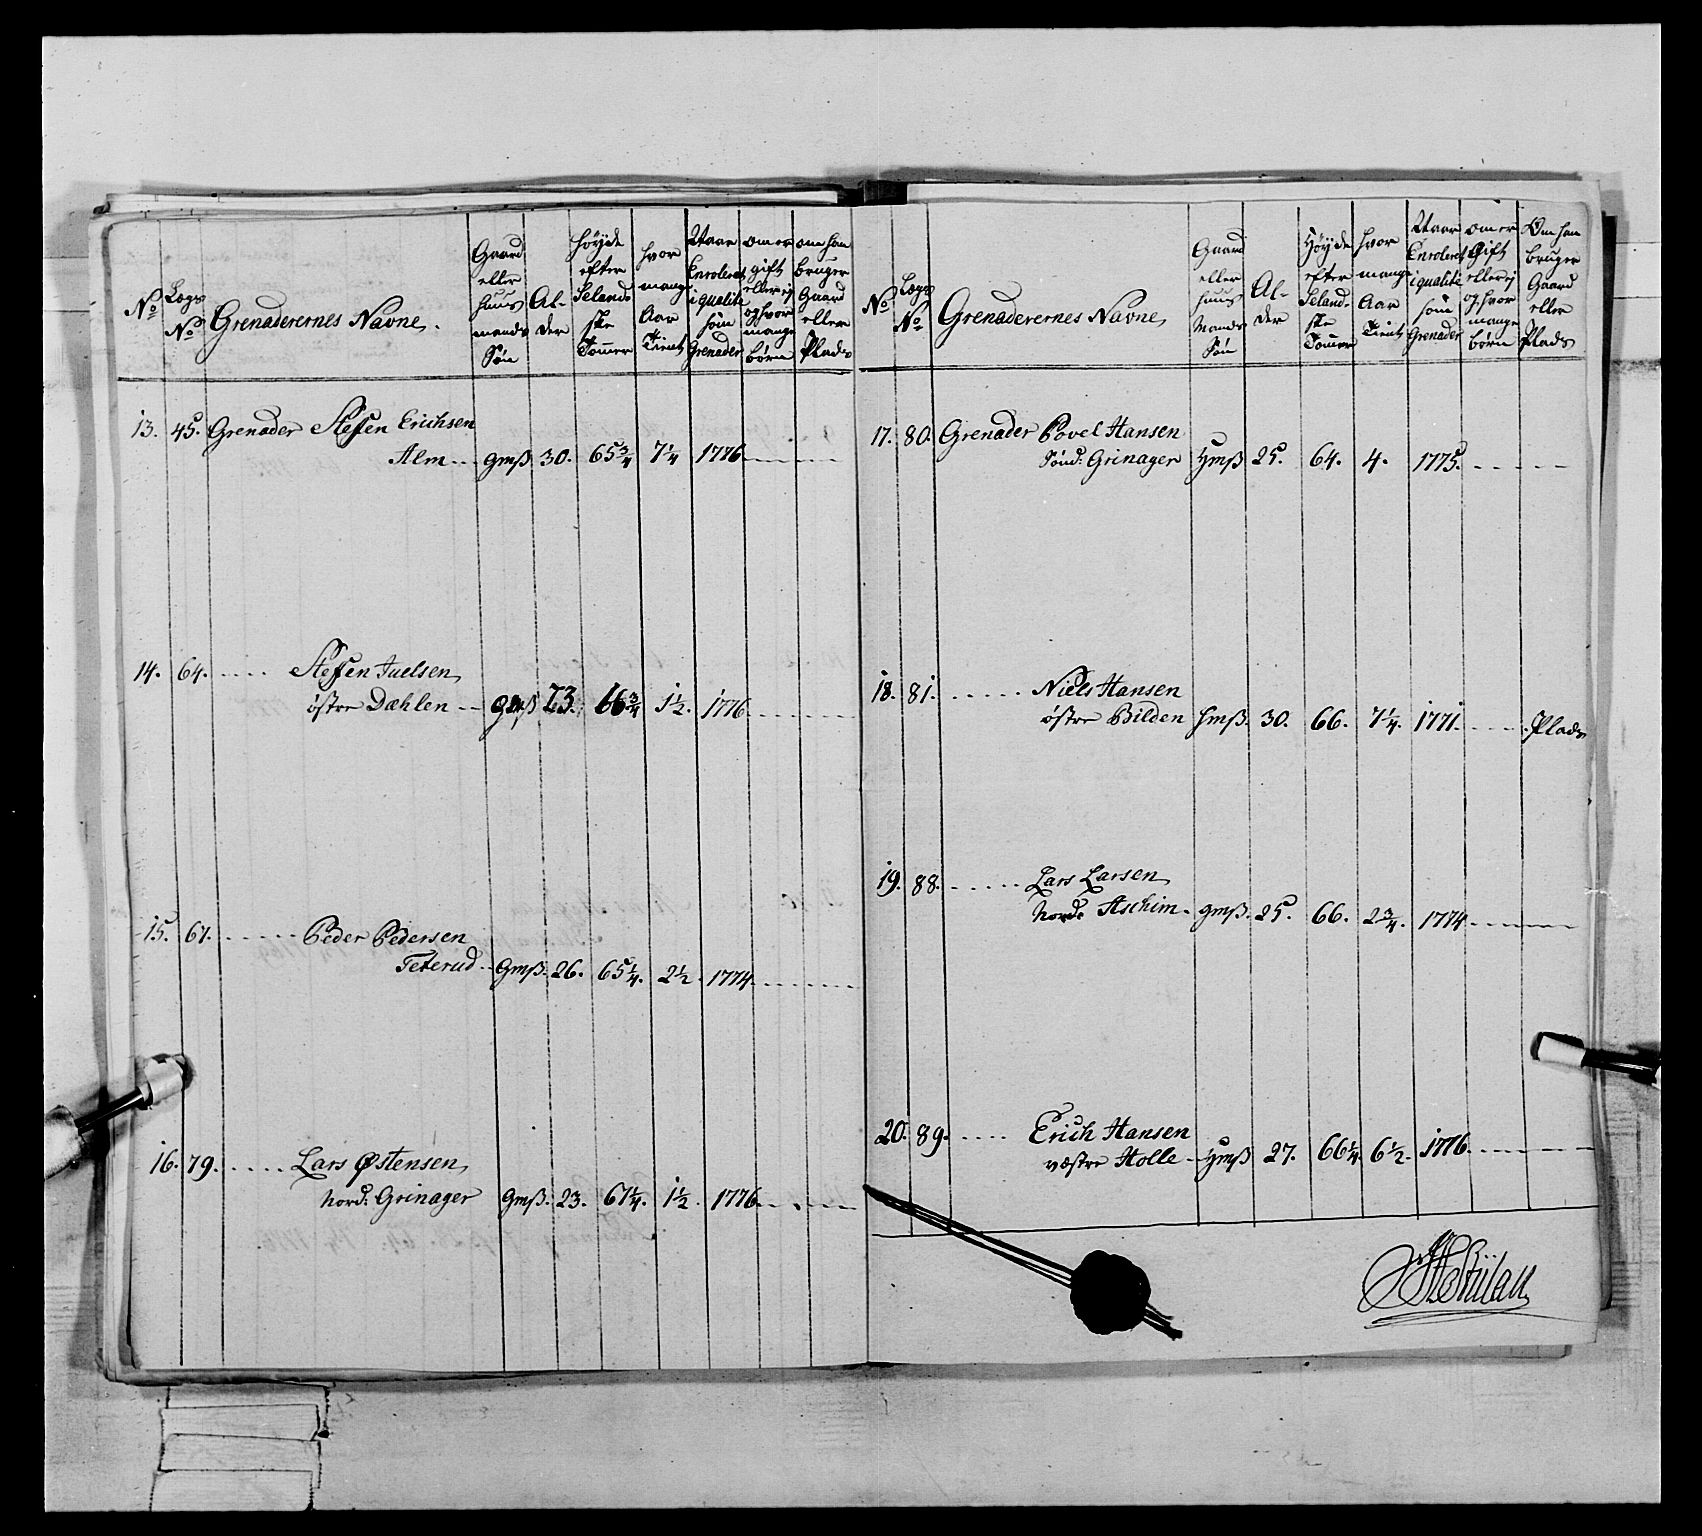 No
Lægs No
Grenaderernes Navne.
Gaard eller Huus mands Søn
Al- der
Høyde efter Selands ske Tommer
hvor mange Aar Tient
Naar Enroleret i qualite som Grenader
om er gift eller ej og hvor mange børn
om han bruger Gaard eller Plads
13. 45. Grenader Steffen Erichsen
Alm gmß 30. 65 3/4 7 1/4 1776
14. 64. Steffen Juelsen
østre Dæhlen gmß 23. 66 3/4 1 1/2. 1776
15. 67. Peder Pedersen
Teterud gmß. 26. 65 1/4. 2 1/2. 1774
16. 79. Lars Østensen
Nord: Grinager gmß. 23. 67 1/4. 1 1/2. 1776
No
Lægs No
Grenaderernes Navne
Gaard eller Huus Mands Søn
Al- der
Høyde efter Selands- ske Tommer
hvor mange Aar Tient
Naar Enroleret i qualite som Grenader
om er Gift eller ej og hvor mange børn
Om han bruger Gaard eller Plads
17. 80. Grenader Povel Hansen
Sønd: Grinager Hmß 25. 64. 4. 1775.
18. 81. Niels Hansen
østre Bilden Hmß. 30. 66. 7 1/4. 1771. Plads
19. 88. Lars Larsen
Nord: Aschim. gmß. 25. 66. 2 3/4. 1774
20. 89. Erich Hansen
væstre Holle Hmß 27. 66 1/4 6 1/2. 1776